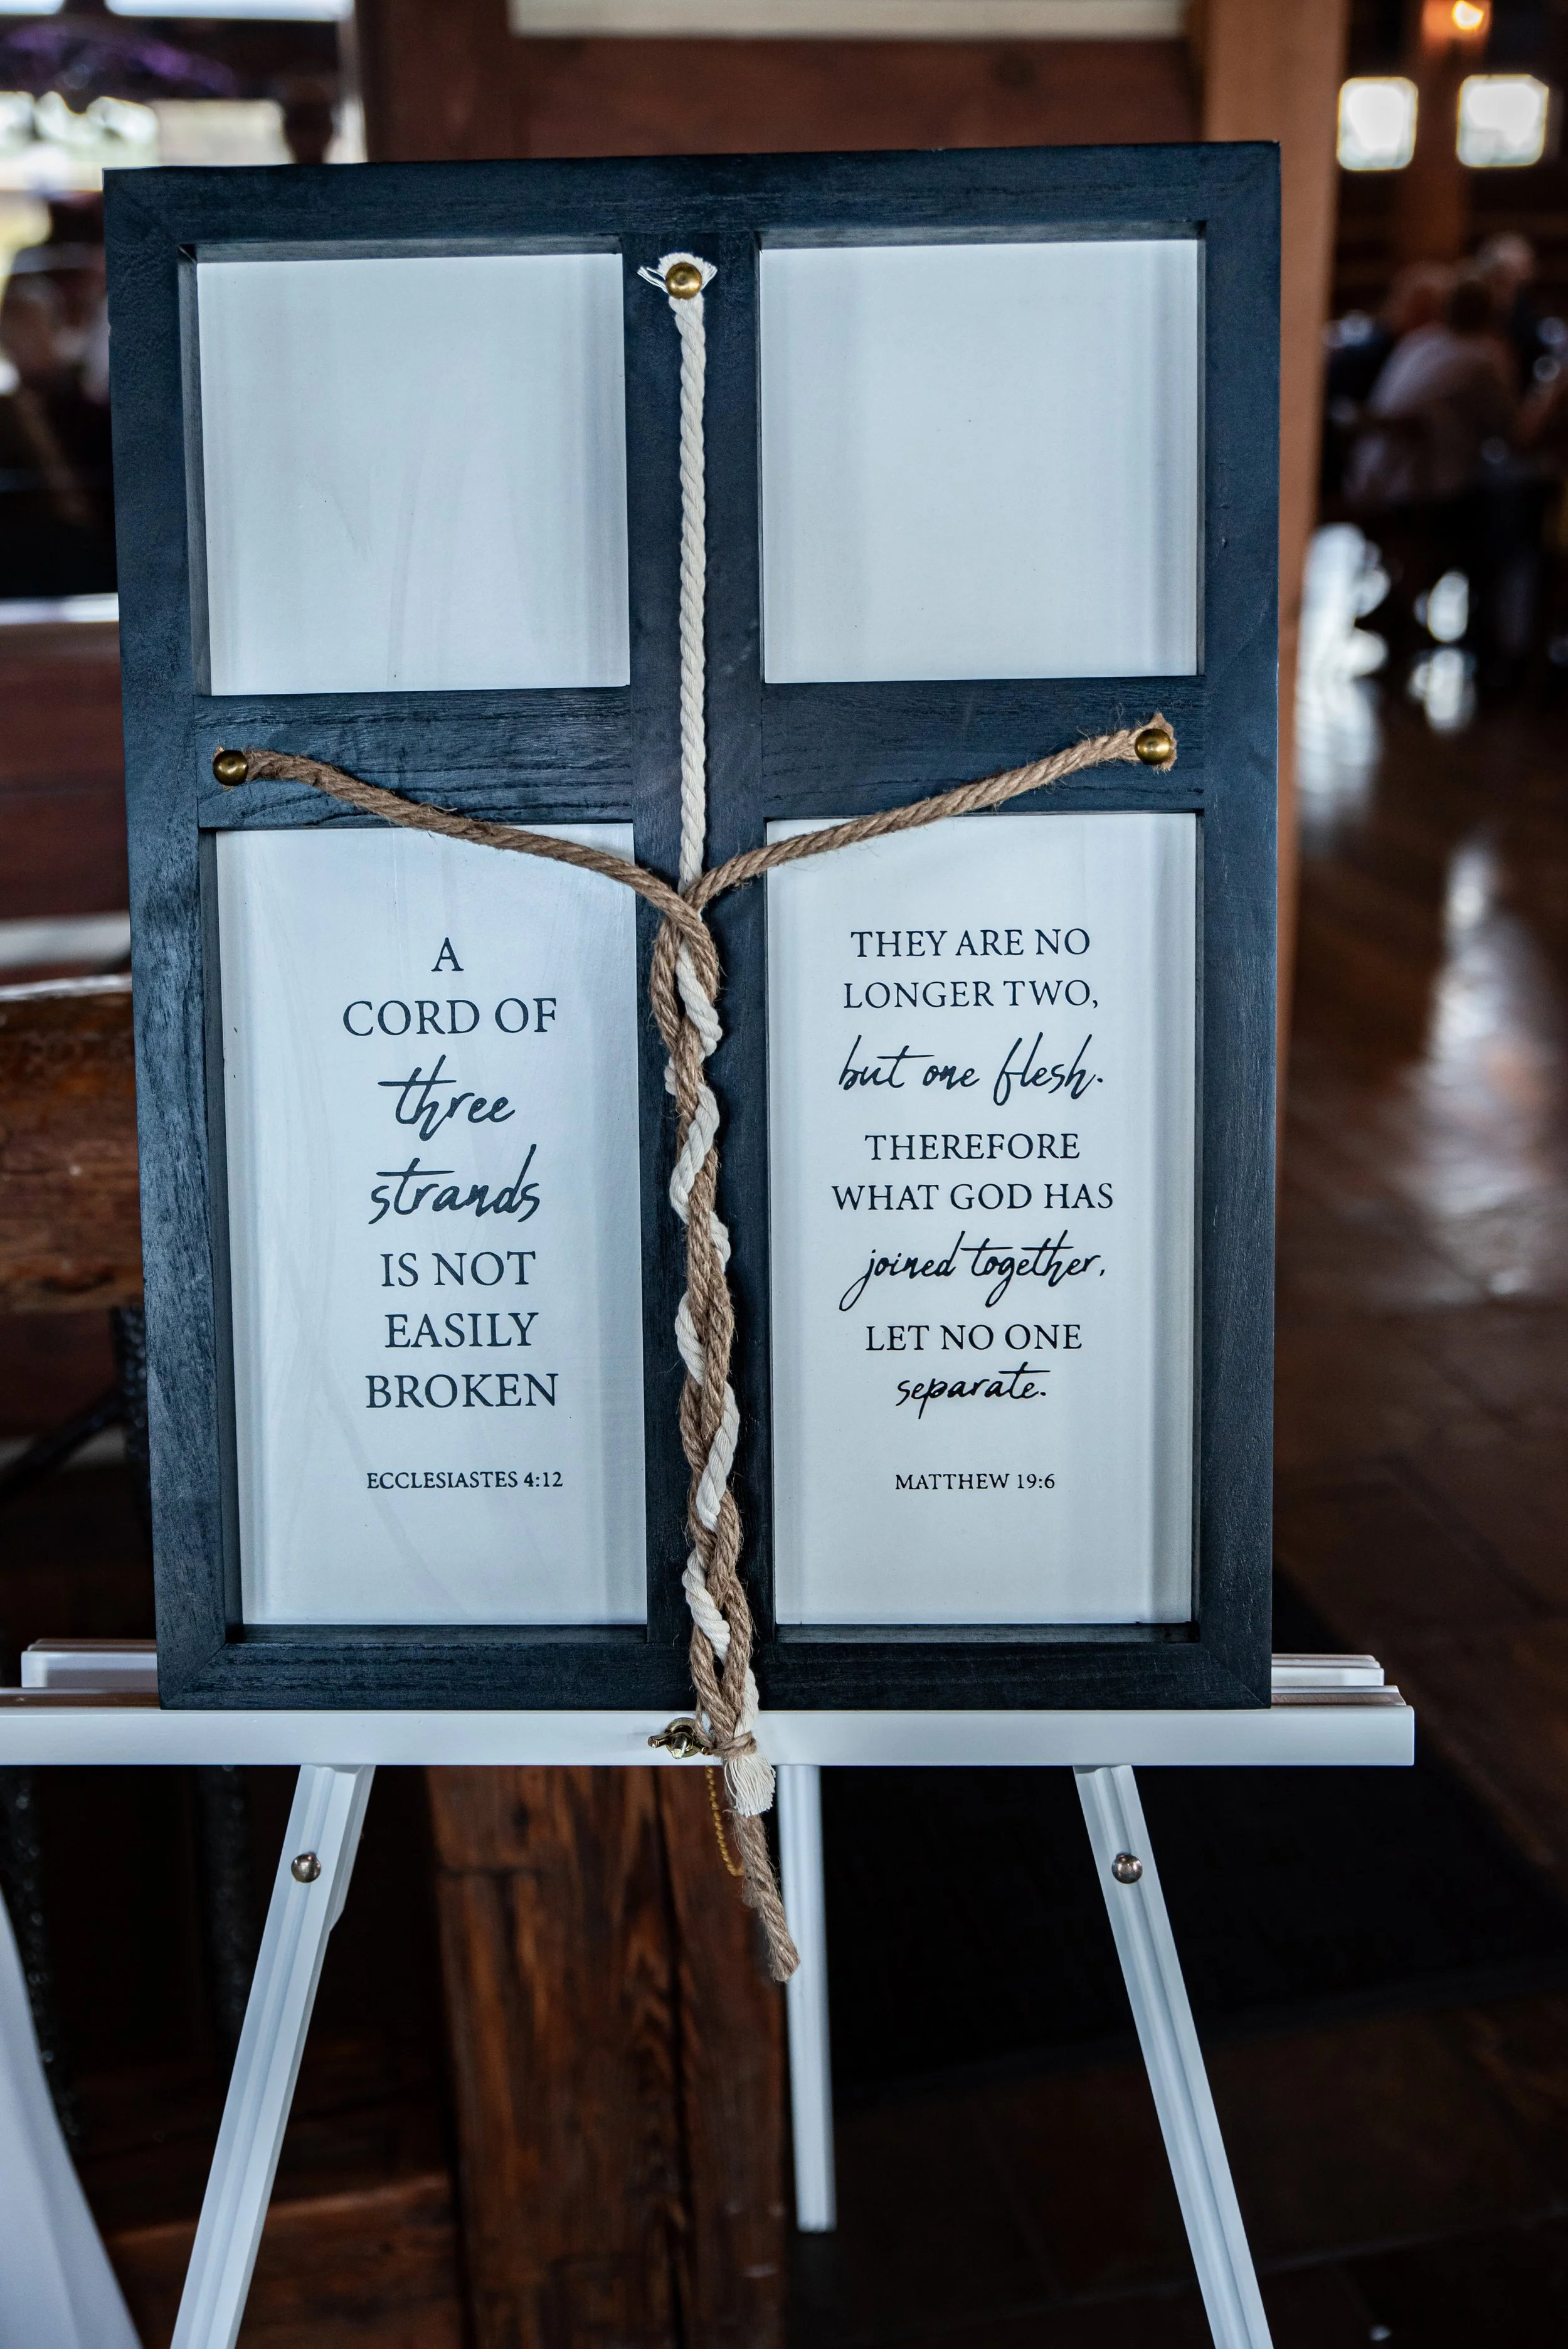 A
CORD OF
three
strands
IS NOT
EASILY
BROKEN
ECCLESIASTES 4:12
THEY ARE NO
LONGER TWO,
but one flesh.
THEREFORE
WHAT GOD HAS
joined together,
LET NO ONE
separate.
MATTHEW 19:6